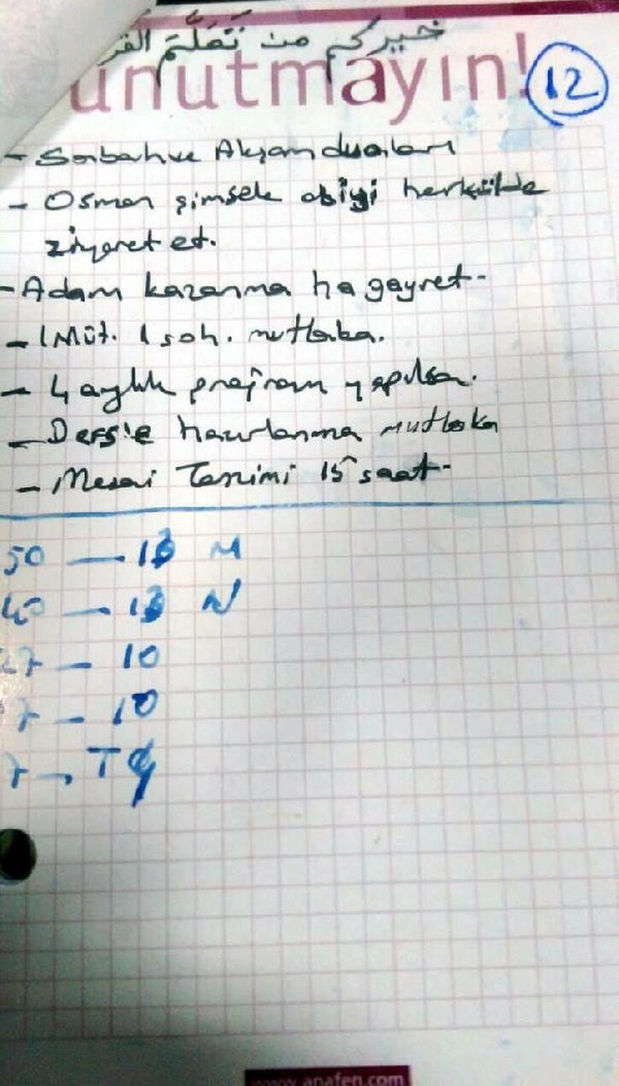 خيركم من تَعَلَّمَ القر
unutmayın!
12
- Sabah ve Akşam duaları
- Osman şimşek abiyi
ziyaret et.
- Adam kazanma ha gayret-
- 1 Müt. 1 soh. mutlaka.
- 4 aylık program yapılsa.
- Derse hazırlanma mutlaka
- Mesai Tanzimi 15 saat-
50 — 13 M
40 — 13 N
27 — 10
7 — 10
7 —
www.anafen.com